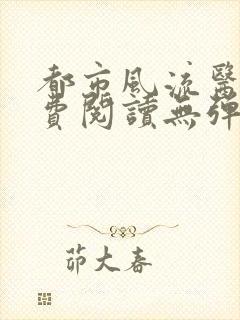 都市風流醫
費閱讀無彈
茆大春